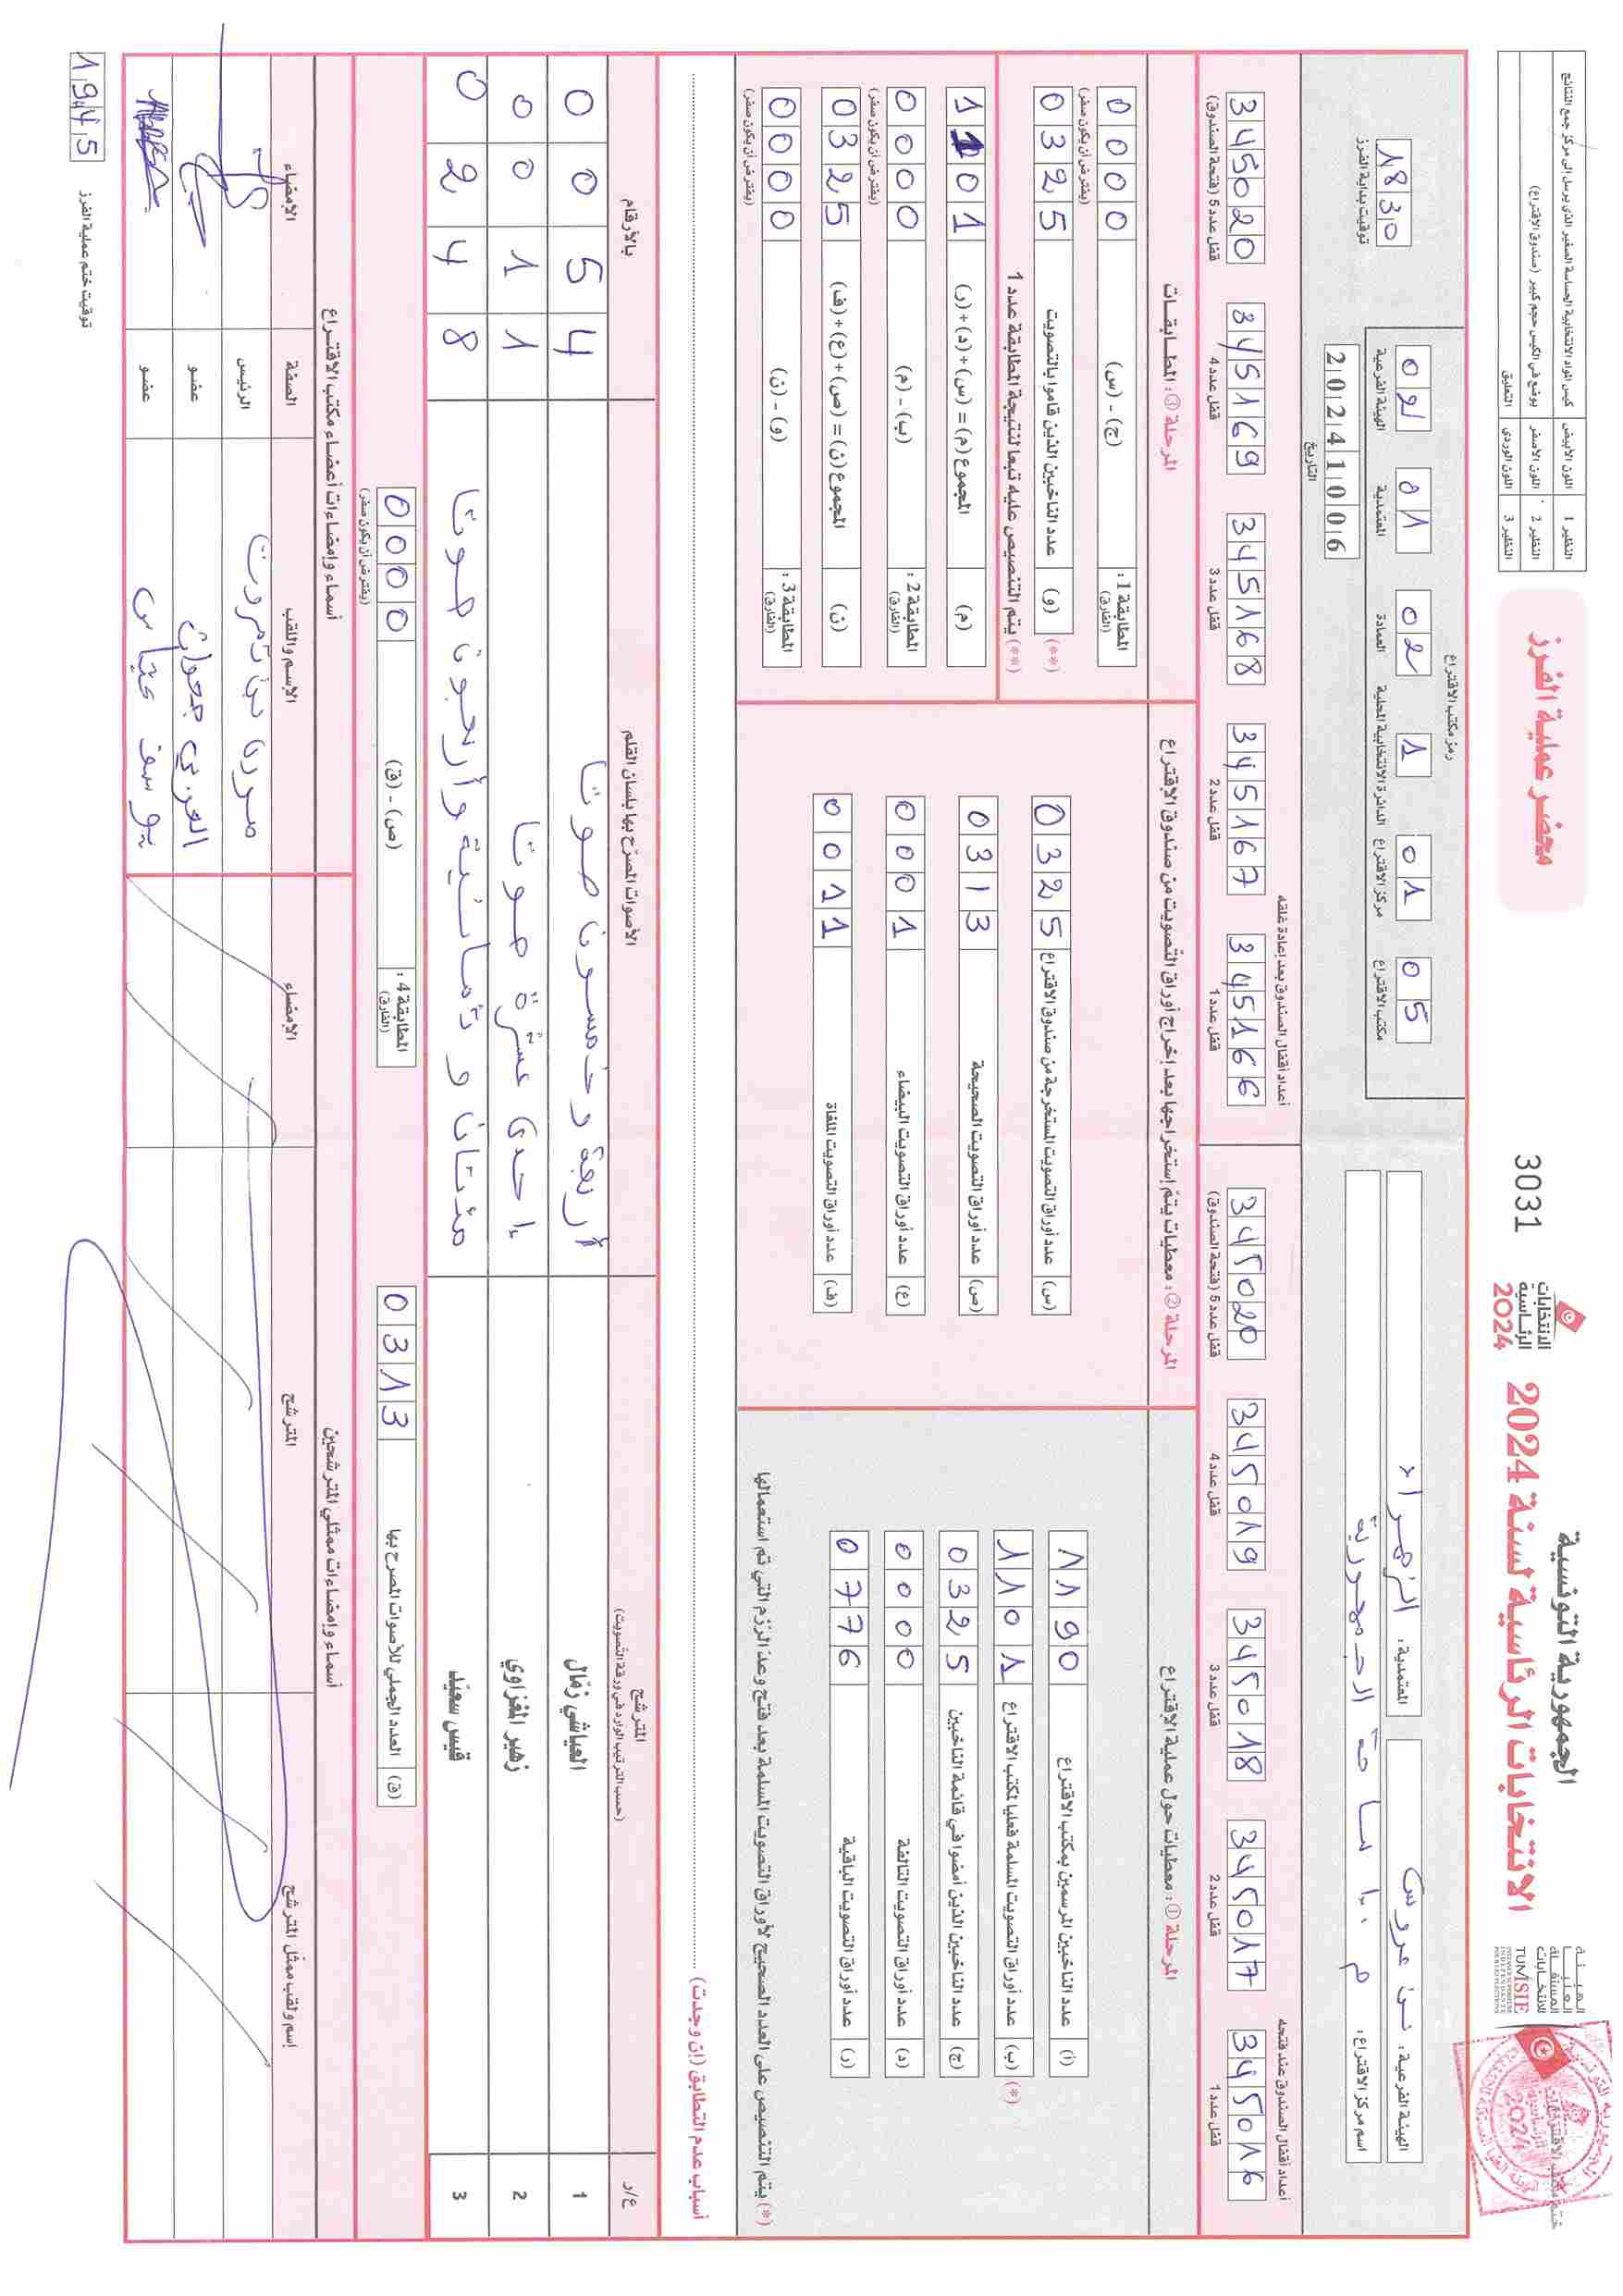 الجمهورية التونسية
الانتخابات الرئاسية لسنة 2024
الهيئة العليا المستقلة للانتخابات
TUNISIE
الانتخابات الرئاسية 2024
3031
محضر عملية الفرز
النظير 1 اللون الأبيض كيس المواد الانتخابية الحساسة الصغير الذي يرسل إلى مركز جمع النتائج
النظير 2 اللون الأصفر يوضع في الكيس حجم كبير (صندوق الاقتراع)
النظير 3 اللون الوردي التعليق
الهيئة الفرعية: بن عروس
المعتمدية: الزهراء
اسم مركز الاقتراع: م. إ. ساحة الجمهورية
رمز مكتب الاقتراع
02 الهيئة الفرعية
01 المعتمدية
02 العمادة
1 الدائرة الانتخابية المحلية
01 مركز الاقتراع
05 مكتب الاقتراع
20241006
التاريخ
1830
توقيت بداية الفرز
أعداد أقفال الصندوق عند فتحه
345016 قفل عدد 1
345017 قفل عدد 2
345018 قفل عدد 3
345019 قفل عدد 4
345020 قفل عدد 5 (فتحة الصندوق)
أعداد أقفال الصندوق بعد إعادة غلقه
345166 قفل عدد 1
345167 قفل عدد 2
345168 قفل عدد 3
345169 قفل عدد 4
345020 قفل عدد 5 (فتحة الصندوق)
المرحلة ①: معطيات حول عملية الاقتراع
(أ) عدد الناخبين المرسمين بمكتب الاقتراع 1190
(*) (ب) عدد أوراق التصويت المسلمة فعليا لمكتب الاقتراع 1101
(ج) عدد الناخبين الذين أمضوا في قائمة الناخبين 0325
(د) عدد أوراق التصويت التالفة 0000
(ر) عدد أوراق التصويت الباقية 0776
(*) يتم التنصيص على العدد الصحيح لأوراق التصويت المسلمة بعد فتح وعد الرزم التي تم استعمالها
المرحلة ②: معطيات يتم إستخراجها بعد إخراج أوراق التصويت من صندوق الاقتراع
(س) عدد أوراق التصويت المستخرجة من صندوق الاقتراع 0325
(ص) عدد أوراق التصويت الصحيحة 0313
(ع) عدد أوراق التصويت البيضاء 0001
(ف) عدد أوراق التصويت الملغاة 0011
المرحلة ③: المطابقات
المطابقة 1: (الفارق) (ج) - (س) 0000
(يفترض أن يكون صفر)
(**) (و) عدد الناخبين الذين قاموا بالتصويت 0325
(**) يتم التنصيص عليه تبعا لنتيجة المطابقة عدد 1
(م) المجموع (م) = (س) + (د) + (ر) 1101
المطابقة 2: (الفارق) (ب) - (م) 0000
(يفترض أن يكون صفر)
(ن) المجموع (ن) = (ص) + (ع) + (ف) 0325
المطابقة 3: (الفارق) (و) - (ن) 0000
(يفترض أن يكون صفر)
أسباب عدم التطابق (إن وجدت)
ع/د المترشح الأصوات المصرح بها بلسان القلم بالأرقام
(حسب الترتيب الوارد في ورقة التصويت)
1 العياشي زمال أربعة وخمسون صوتا 0054
2 زهير المغزاوي إحدى عشرة صوتا 0011
3 قيس سعيد مئتان و ثمانية وأربعون صوتا 0248
(ق) العدد الجملي للأصوات المصرح بها 0313
المطابقة 4: (الفارق) (ص) - (ق) 0000
(يفترض أن يكون صفر)
أسماء وإمضاءات ممثلي المترشحين
إسم ولقب ممثل المترشح المترشح الإمضاء
أسماء وإمضاءات أعضاء مكتب الاقتراع
الإسم واللقب الصفة الإمضاء
الرئيس
عضو
يوسف عضو
توقيت ختم عملية الفرز
1945